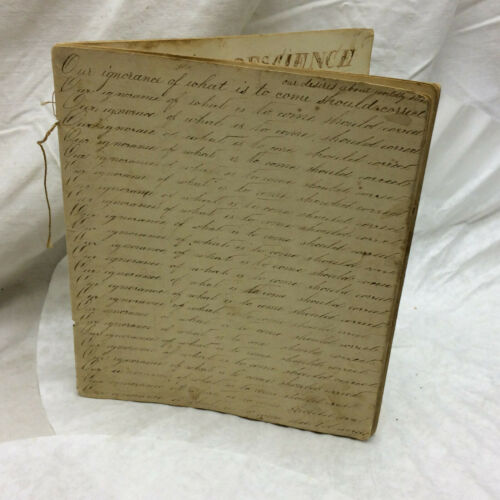 ESCIENCE
Our ignorance of what is to come should correct
our desires about worldly
Our ignorance of what is to come should correct
Our ignorance of what is to come should correct
Our ignorance of what is to come should correct
Our ignorance of what is to come should correct
Our ignorance of what is to come should correct
Our ignorance of what is to come should correct
Our ignorance of what is to come should correct
Our ignorance of what is to come should correct
Our ignorance of what is to come should correct
Our ignorance of what is to come should correct
Our ignorance of what is to come should correct
Our ignorance of what is to come should correct
Our ignorance of what is to come should correct
Our ignorance of what is to come should correct
Our ignorance of what is to come should correct
Our ignorance of what is to come should correct